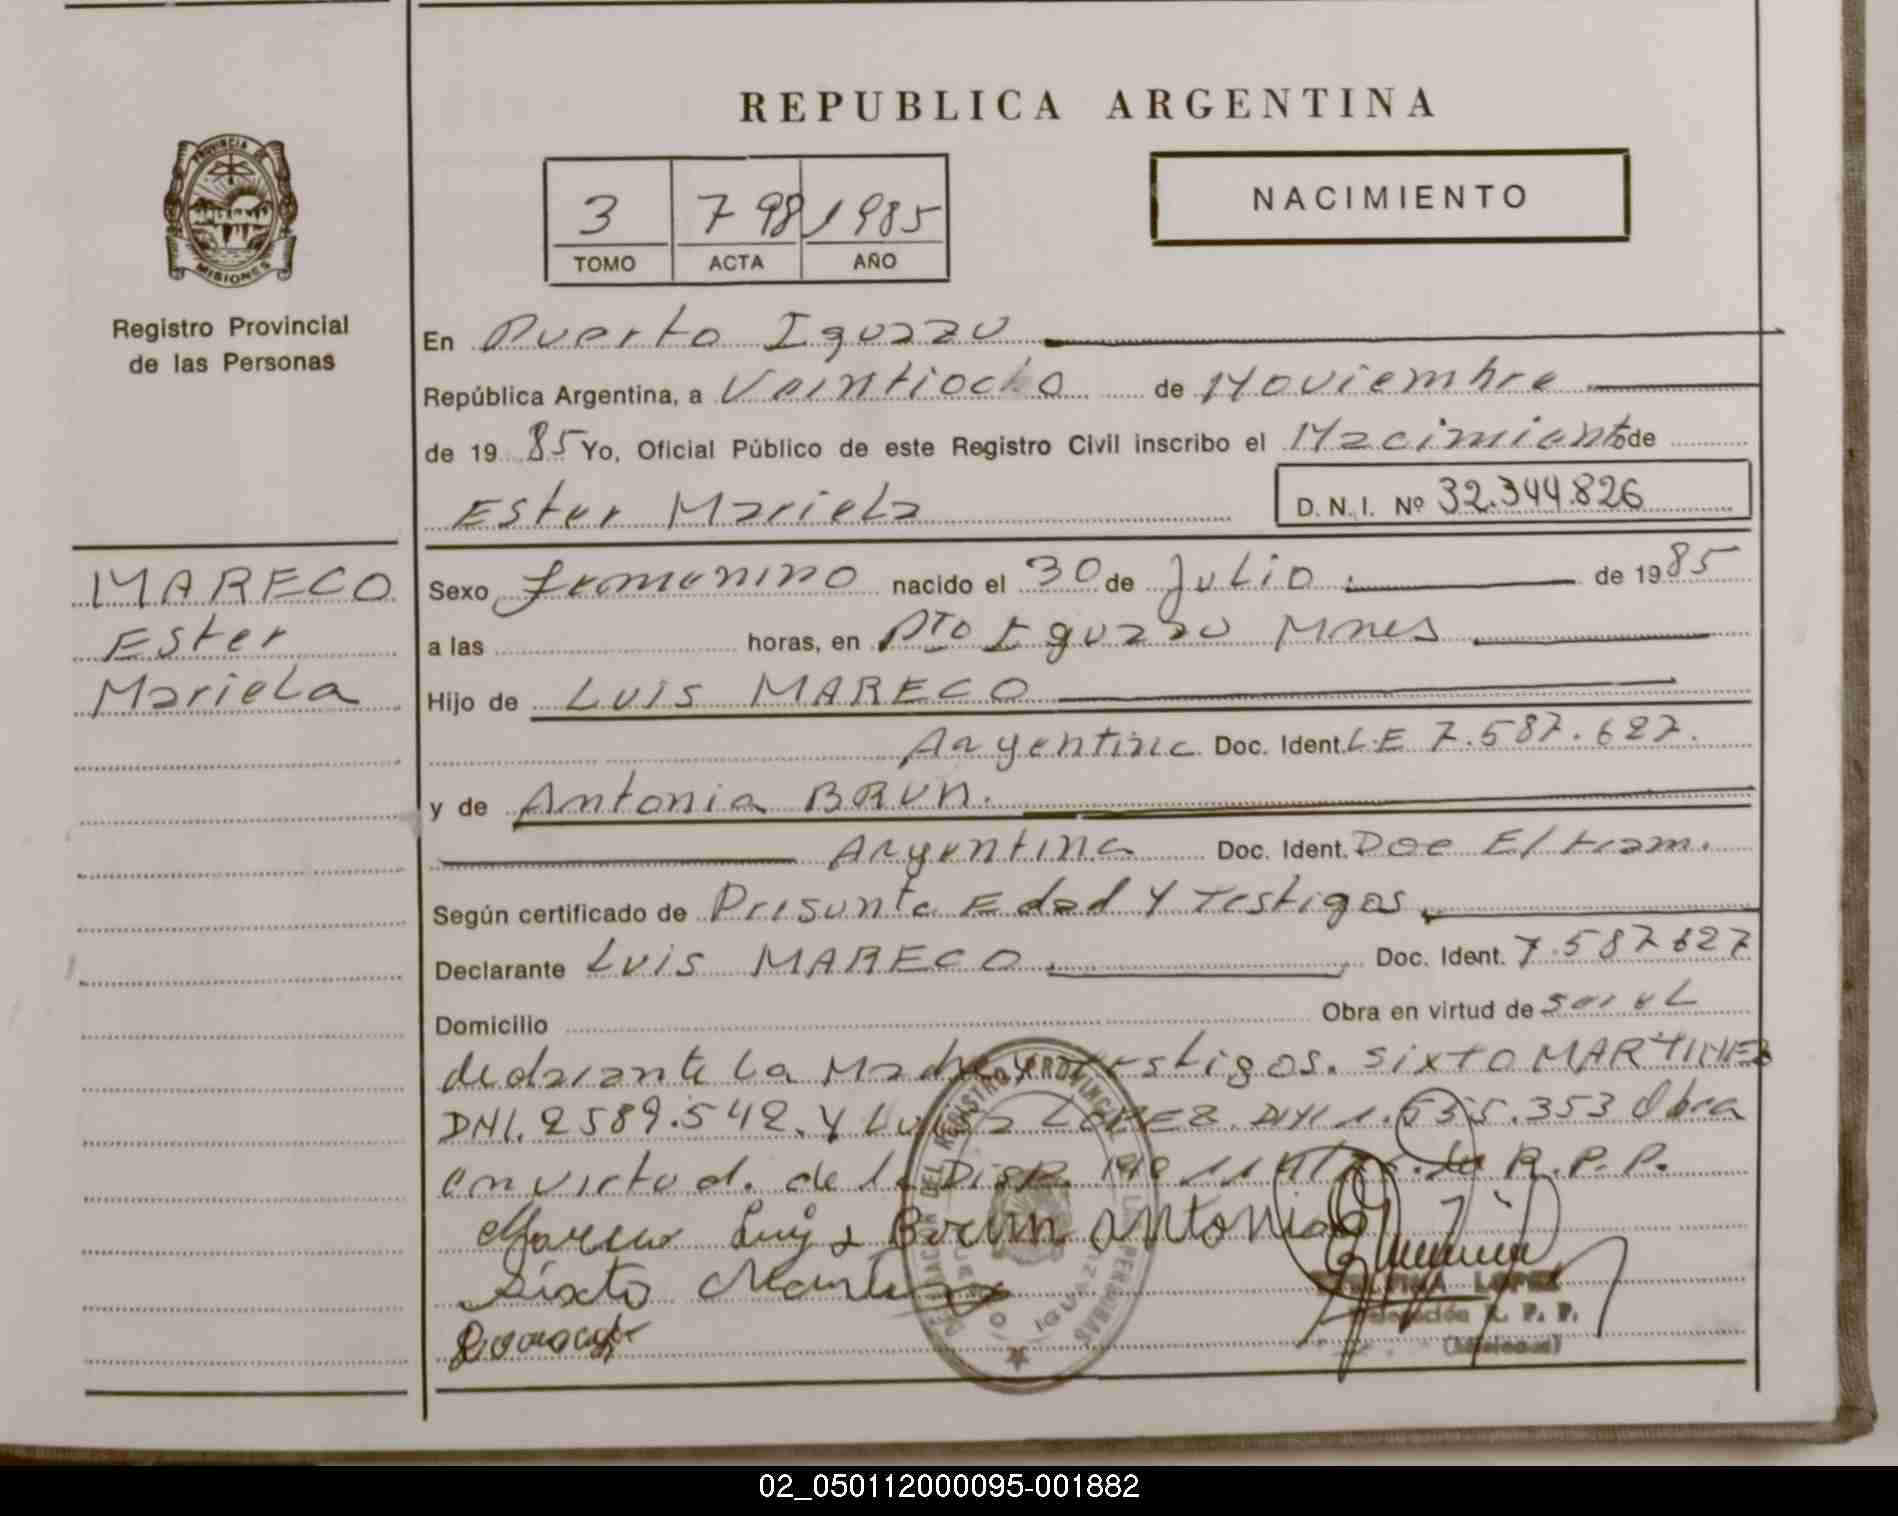 REPUBLICA ARGENTINA
PROVINCIA DE
MISIONES
Registro Provincial
de las Personas
3 798 1985
TOMO ACTA AÑO
NACIMIENTO
En Puerto Iguazu
República Argentina, a Veintiocho de Noviembre
de 19 85 Yo, Oficial Público de este Registro Civil inscribo el Nacimiento de
Ester Mariela D. N. I. Nº 32.344.826
MARECO
Ester
Mariela
Sexo femenino nacido el 30 de Julio de 19 85
a las horas, en Pto Iguazu Mnes
Hijo de Luis MARECO
Argentino Doc. Ident. L.E 7.587.627.
y de Antonia BRUN.
Argentina Doc. Ident. Doc E/ tram.
Según certificado de Presunta Edad y testigos
Declarante Luis MARECO Doc. Ident. 7.587.627
Domicilio Obra en virtud de ser el
declarante la Madre y testigos. SIXTO MARTINEZ
DNI. 2589.542. y LOPEZ DNI 1.555.353 Obra
en virtud. de la Disp. R.P.P.
Mareco Luis Brun Antonia
Sixto Martinez
LOPEZ
Delegación R. P. P.
(Misiones)
02_050112000095-001882